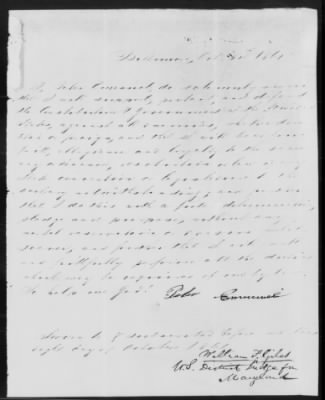 Baltimore, Oct
I, John Emanuel do solemnly swear
that I will support, protect, and defend
the Constitution & Government of the United
States, against all enemies, whether domes-
tic or foreign, and that I will bear true
faith, allegiance and loyalty to the same
any ordinance, resolution or law of any
State Convention or Legislature to the
contrary notwithstanding; and further
that I do this with a full determination,
pledge and purpose, without any
mental reservation or evasion whatso-
ever, and further that I will well
and faithfully perform all the duties
which may be required of me by law.
So help me God!
John Emanuel
Sworn to & subscribed before me this
eight day of October
William F. Giles
U.S. District Judge for
Maryland